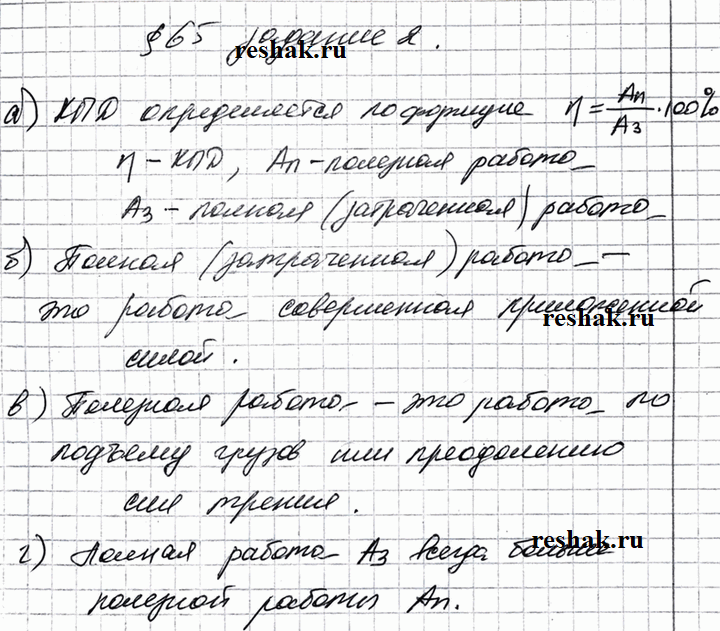 § 65 задание 2.
reshak.ru
а) КПД определяется по формуле η = Aп/Aз · 100%
η – КПД, Aп – полезная работа
Aз – полная (затраченная) работа
б) Полная (затраченная) работа –
это работа совершенная приложенной
reshak.ru
силой.
в) Полезная работа – это работа по
подъему грузов или преодолению
сил трения.
reshak.ru
г) Полная работа Aз всегда больше
полезной работы Aп.